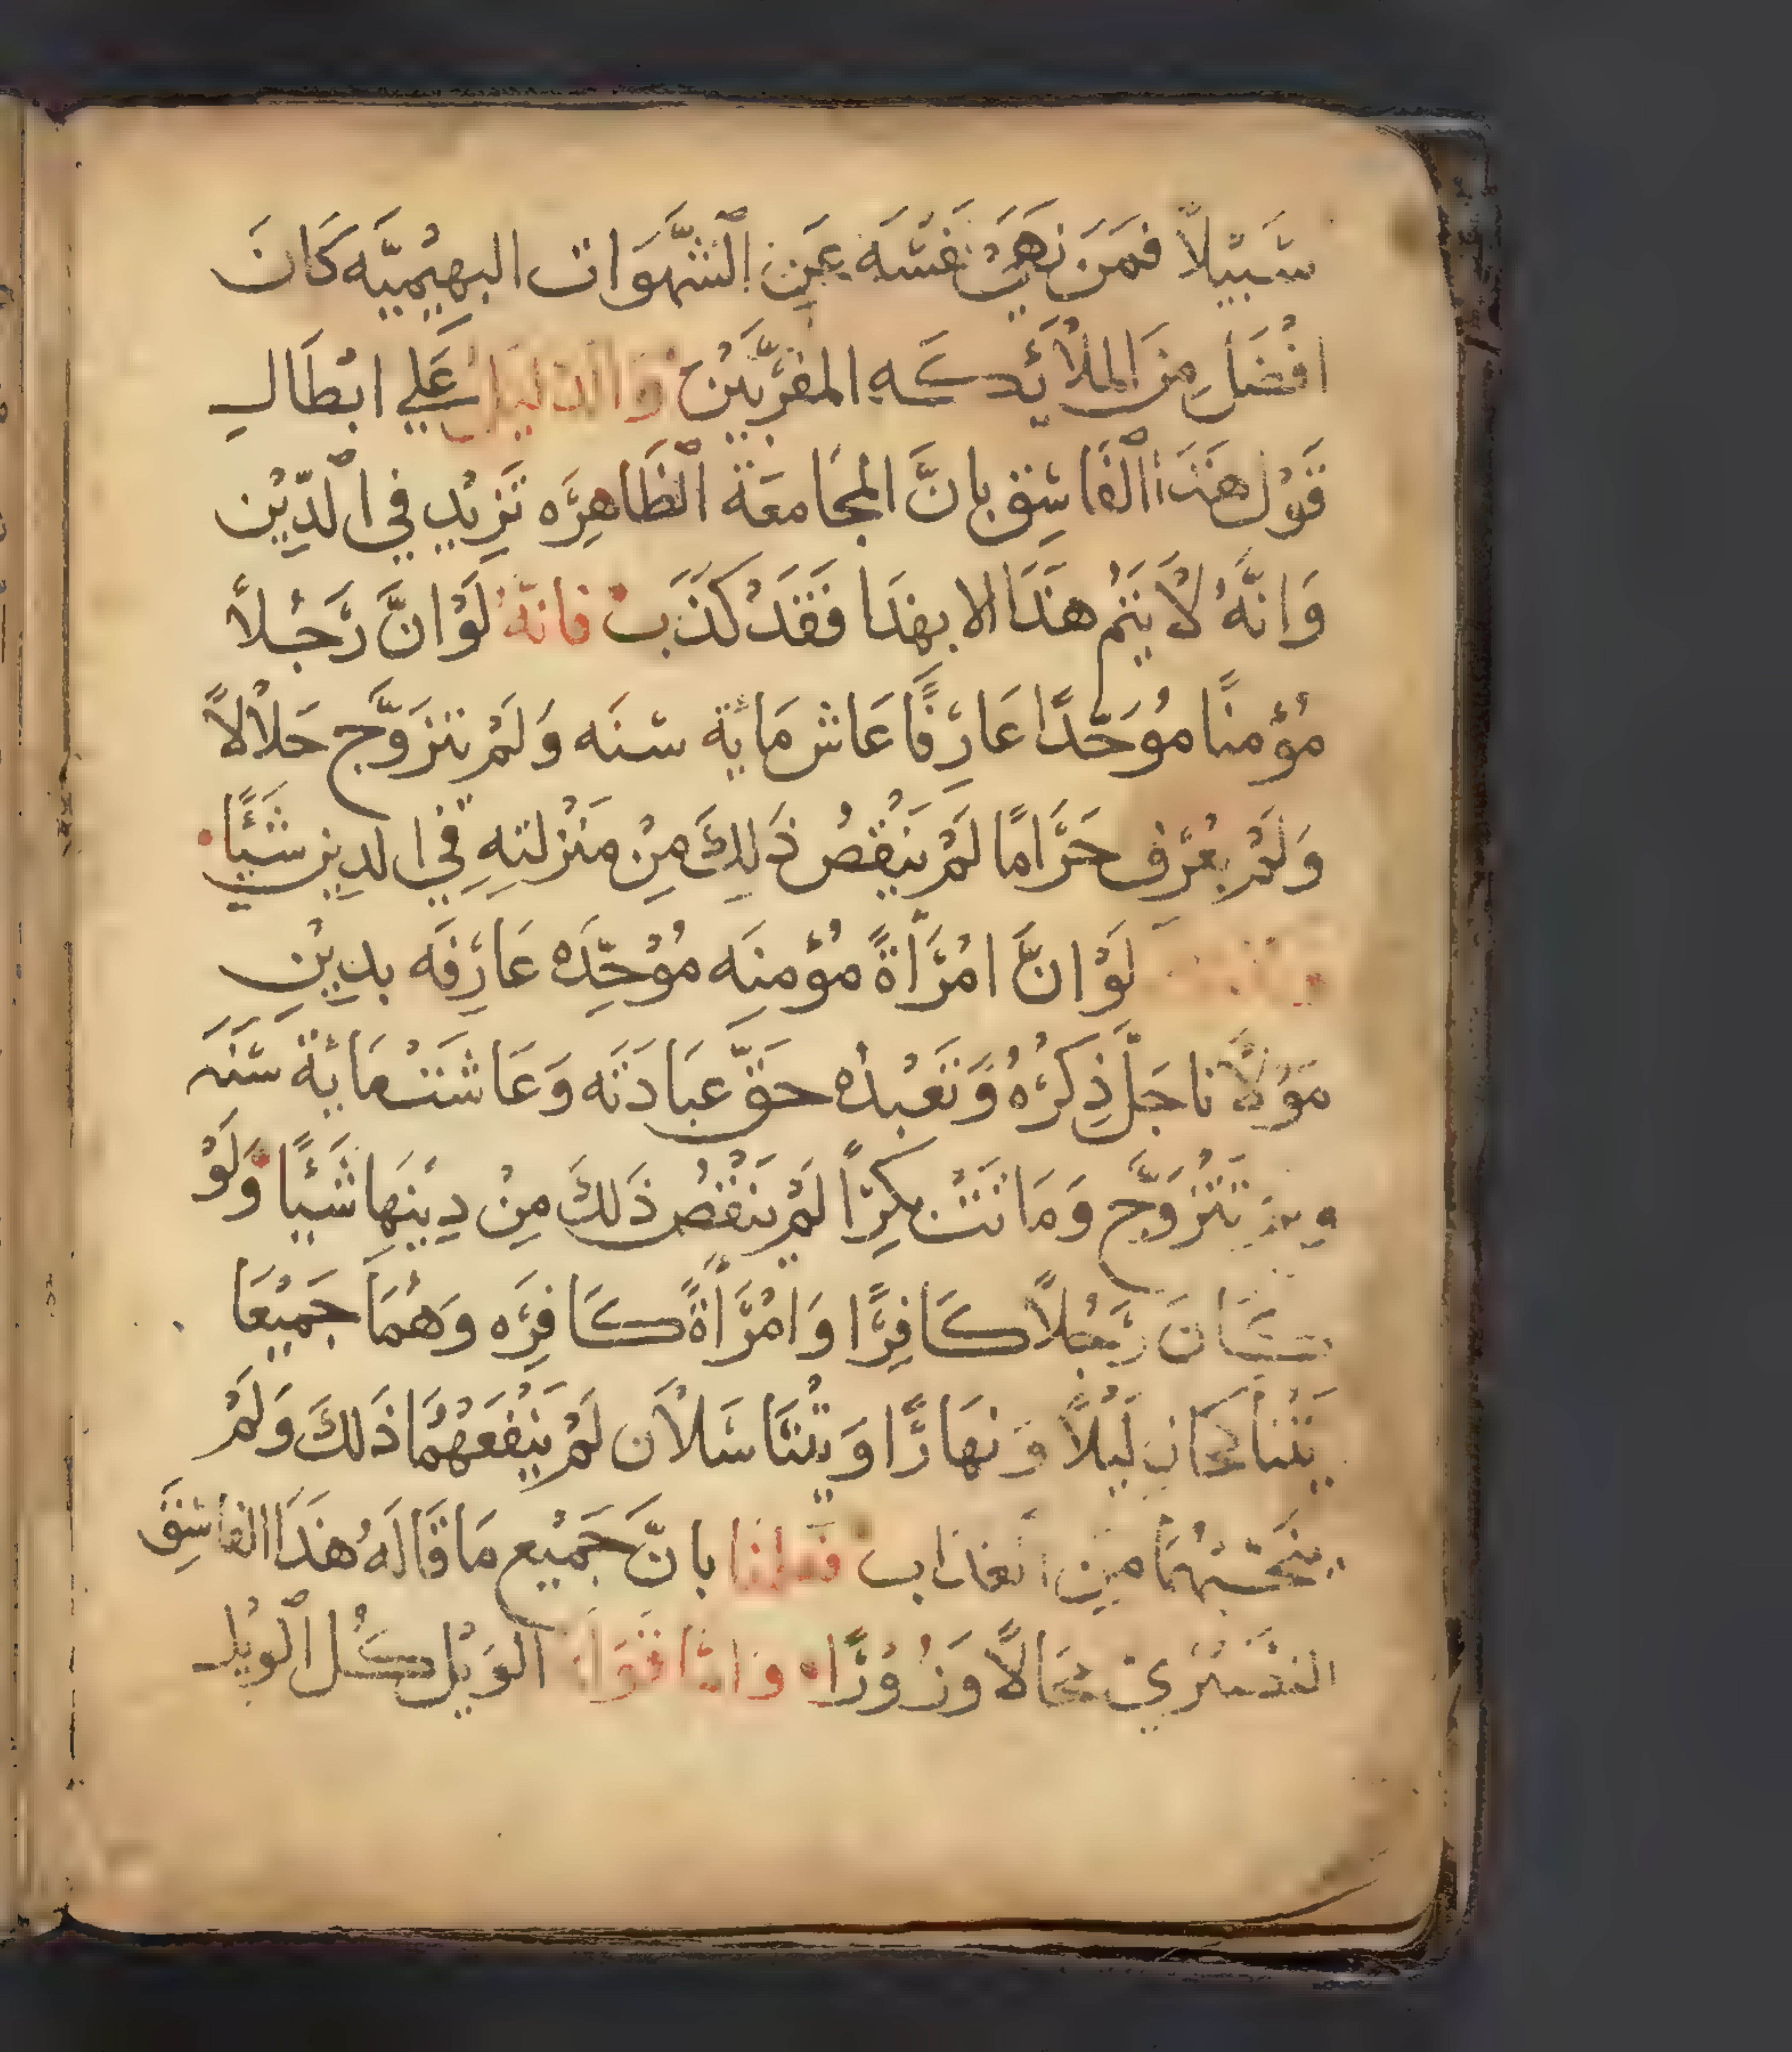 سَبيلًا فمَن نهَيَ نفسَه عَنِ ٱلشَّهوَات البهيْميَّه كَانَ
افْضَل مِنَ الملاْئِكَه المقرَّبيْن وَالدليل عَلي ابْطَال
قَوْل هَذَا ٱلفَاسِق بانَّ المجَامعَة ٱلظَاهِرَه تَزِيْد في ٱلدِّيْن
وَانَّهُ لاْ يَتم هَذَا الا بهذَا فَقَدْ كَذَب فانّهُ لَوْ انَّ رَجُلاً
مُؤْمنًا مُوَحّدًا عَارِفًا عَاش مَاية سنَه وَلَمْ يتزَوَّج حَلاْلاً
وَلَمْ يعْرَف حَرَامًا لَمْ يَنْقُصُ ذَلِكَ مِنْ مَنْزلتهِ فِي الدِين شَيْئًا
لَوْ انَّ امْرَأَةً مُؤْمنَه مُوْحِّدَه عَارِفَه بدِيْنِ
مَوْلاْنا جَلَّ ذِكْرُهُ وَتَعْبُدُه حَقَّ عبَادَتَه وَعَاشَتْ مَائة سَنَه
وَلَمْ تتْزَوَّج وَمَاتَتْ بكرًا لَمْ يَنْقُصُ ذَلكَ مِنْ دِيْنهَا شَيْئًا وَلَوْ
كَانَ رَجُلاً كَافِرًا وَامْرَأَةً كَافِرَه وَهُمَا جَمِيْعَا
يَتْناكحَان لَيْلاً وَنهَارًا وَيتْنَاسَلاْن لَمْ يَنْفَعَهُمَا ذَلكَ وَلَمْ
يُنَجّيْهُمَا مِن العَذَاب فعلمْنا بانَّ جَمِيْع مَا قَالَهُ هَذَا الفاسِق
النصَيْرِي مُحَالاً وَزُوْرًا وَامّا قَوْلَهُ الوَيْل كُل ٱلوَيْل